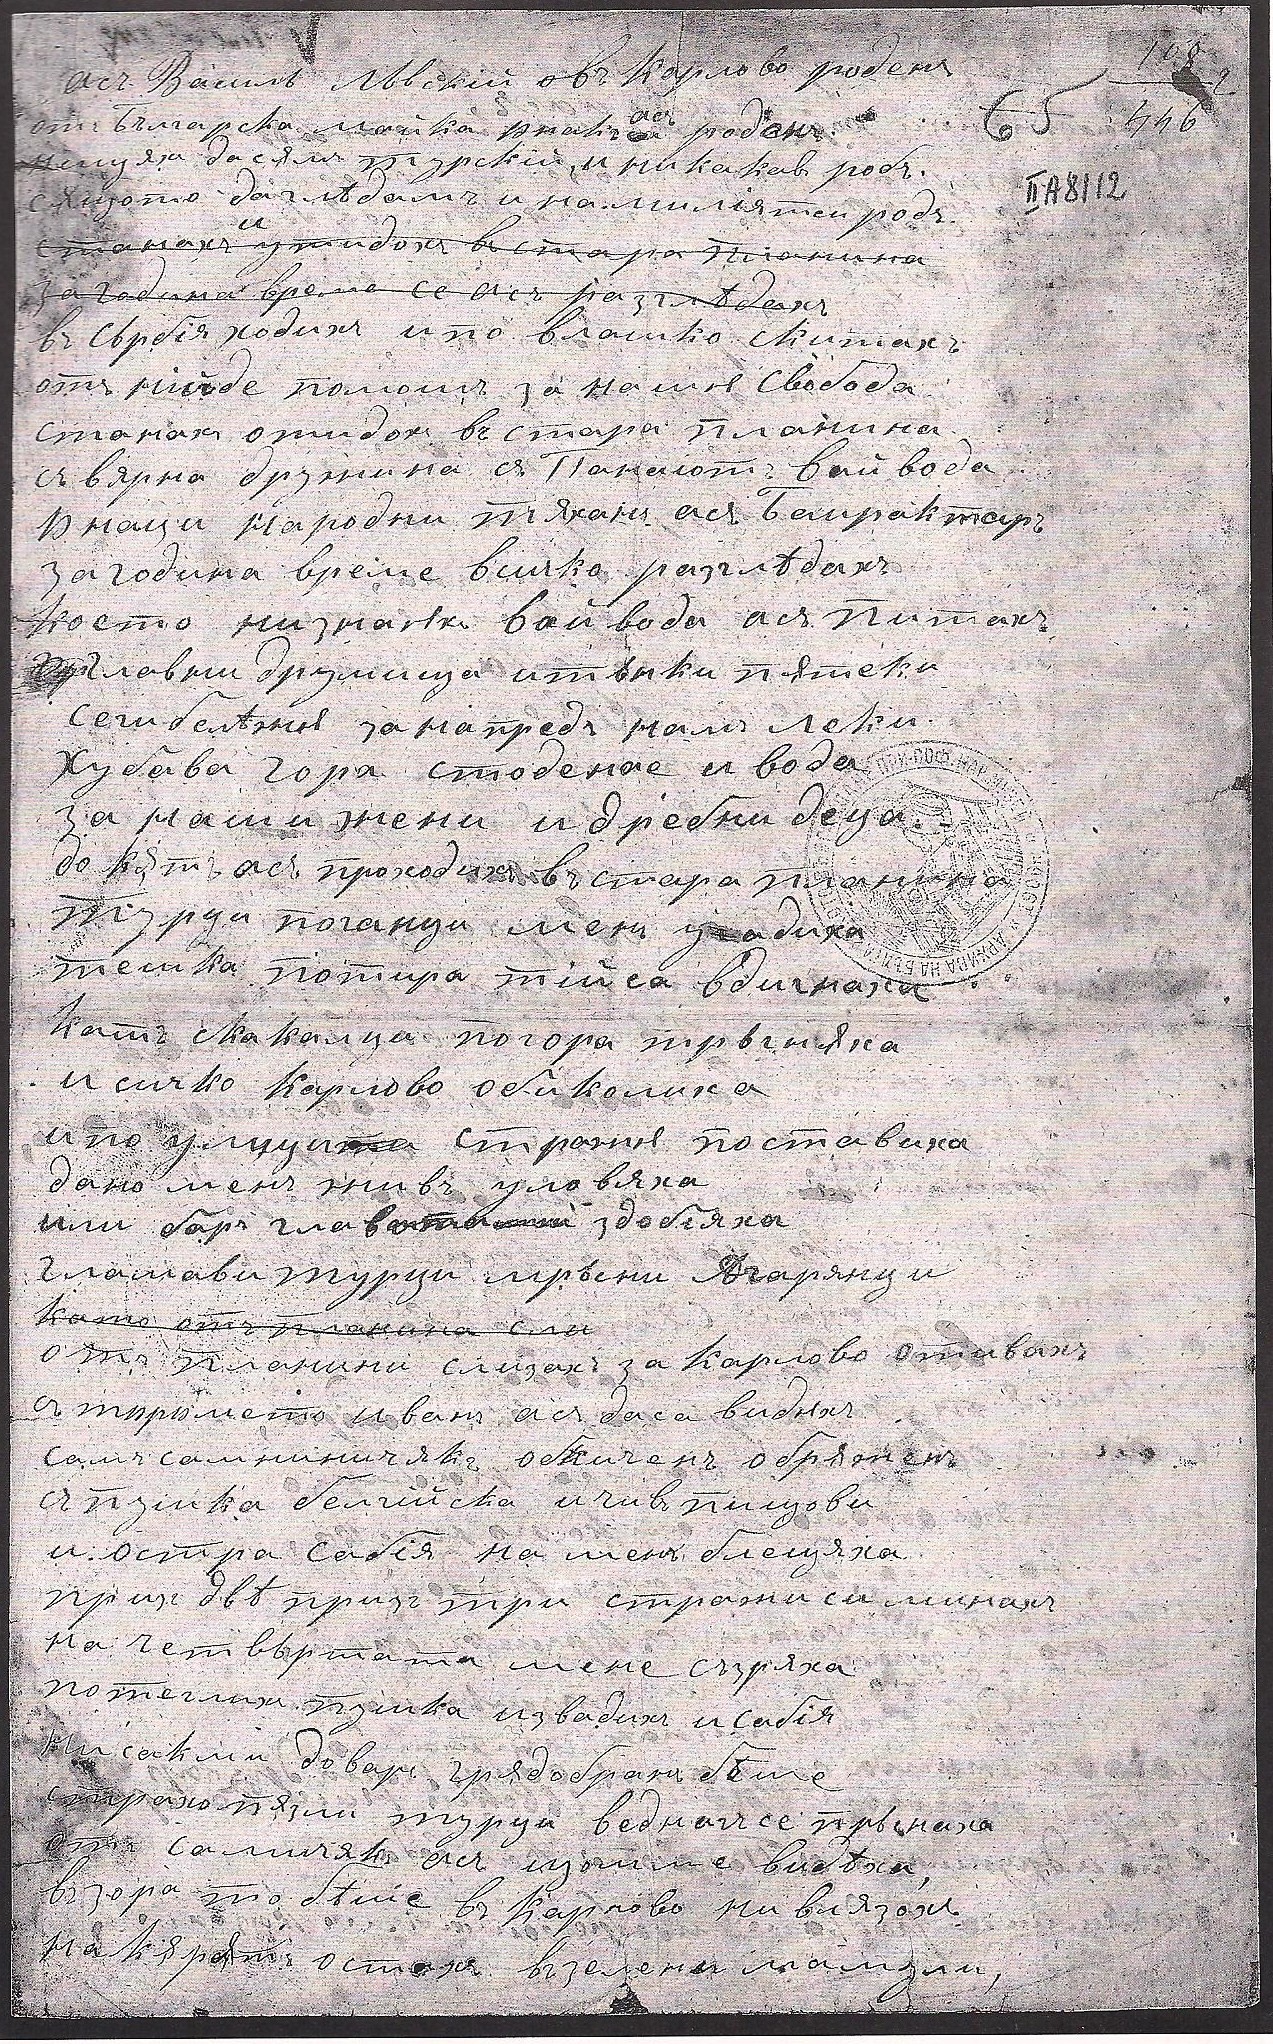 108
2
446
65
IIA8112
Асъ Василъ Лѣвскій въ Карлово роденъ
отъ Българска майка юнакъ асъ роденъ.
нещях да сямъ турскій и никакав робъ.
сящото да глѣдамъ и на миліятси родъ.
станахъ и утидохъ въ стара планина
за година време се асъ разглѣдахъ
въ Сърбія ходихъ и по влашко скитахъ
отъ нійде помощъ за наша свобода
станахъ отидохъ въ стара планина
съ вярна дружина съ Панаіотъ вайвода
юнаци народни тяханъ асъ Баирактаръ
за година време всичко разглѣдахъ
което низнаяхъ вайвода асъ питахъ
главни друмища итънки пятеки
сеги бележия занапредъ намъ леки.
Хубава гора стодение и вода
за наши жени и дребни деца.
докатъ асъ проходихъ въ стара планина
турци поганци менъ усадиха
тешка потира тій са вдигнаха
катъ скакалци погора тръгняха
и сичко Карлово обиколиха
и по улици стражия поставиха
дано менъ живъ уловяха
или баръ глава здобіяха
гламави турци мръсни Агарянци
като отъ планина сли
отъ планини слизахъ за Карлово отивахъ
съ тръмето иванъ асъ даса видяхъ
самъ саминичякъ обкиченъ обряженъ
съ пушка белгійска ичивъ пищови
и остра сабія на менъ блещяха
призъ двѣ призъ три стражи си минахъ
на четвъртата мене съзряха
потеглихъ пушка извадихъ и сабія
ни сакми доваръ грядобранъ бѣше
страхопязли турци веднагъсе пръснаха
отъ самичякъ асъ щомме видѣха,
възора то бѣше въ Карлово ни влязохъ
на кярятъ остахъ възелени мамули,